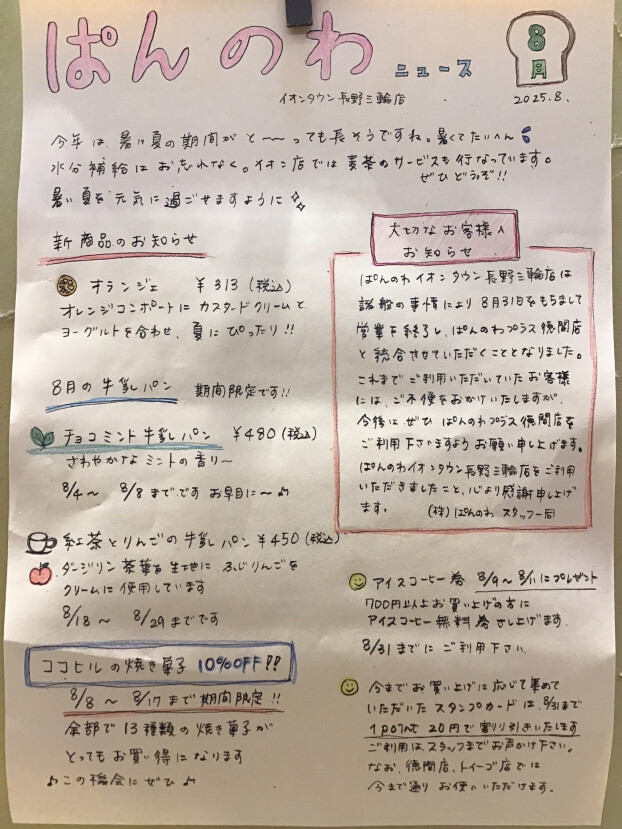 ぱんのわ ニュース
8月
イオンタウン長野三輪店
2025.8.
今年は、暑い夏の期間がと〜〜っても長そうですね。暑くてたいへん
水分補給はお忘れなく。イオン店では麦茶のサービスも行なっています。
ぜひどうぞ!!
暑い夏を元気に過ごせますように
新商品のお知らせ
オランジェ ¥313(税込)
オレンジコンポートにカスタードクリームと
ヨーグルトを合わせ、夏にぴったり!!
8月の牛乳パン 期間限定です!!
チョコミント牛乳パン ¥480(税込)
さわやかなミントの香り〜
8/4〜 8/8までです お早目に〜♪
紅茶とりんごの牛乳パン ¥450(税込)
ダージリン茶葉を生地に ふじりんごを
クリームに使用しています
8/18〜 8/29までです
ココヒルの焼き菓子 10%OFF!!
8/8〜 8/17まで期間限定!!
全部で13種類の焼き菓子が
とってもお買い得になります
♪この機会にぜひ♪
大切なお客様へ
お知らせ
ぱんのわイオンタウン長野三輪店は
諸般の事情により8月31日をもちまして
営業を終了し、ぱんのわプラス徳間店
と統合させていただくこととなりました。
これまでご利用いただいていたお客様
には、ご不便をおかけいたしますが、
今後はぜひぱんのわプラス徳間店を
ご利用下さいますようお願い申し上げます。
ぱんのわイオンタウン長野三輪店をご利用
いただきましたこと、心より感謝申し上げ
ます。 (株)ぱんのわ スタッフ一同
アイスコーヒー券 8/9〜8/11にプレゼント
700円以上お買い上げの方に
アイスコーヒー無料券さし上げます。
8/31までにご利用下さい。
今までお買い上げに応じて集めて
いただいたスタンプカードは、8/31まで
1point 20円で割り引きいたします
ご利用は、スタッフまでお声かけ下さい。
なお、徳間店、トイーゴ店では
今まで通りお使いいただけます。